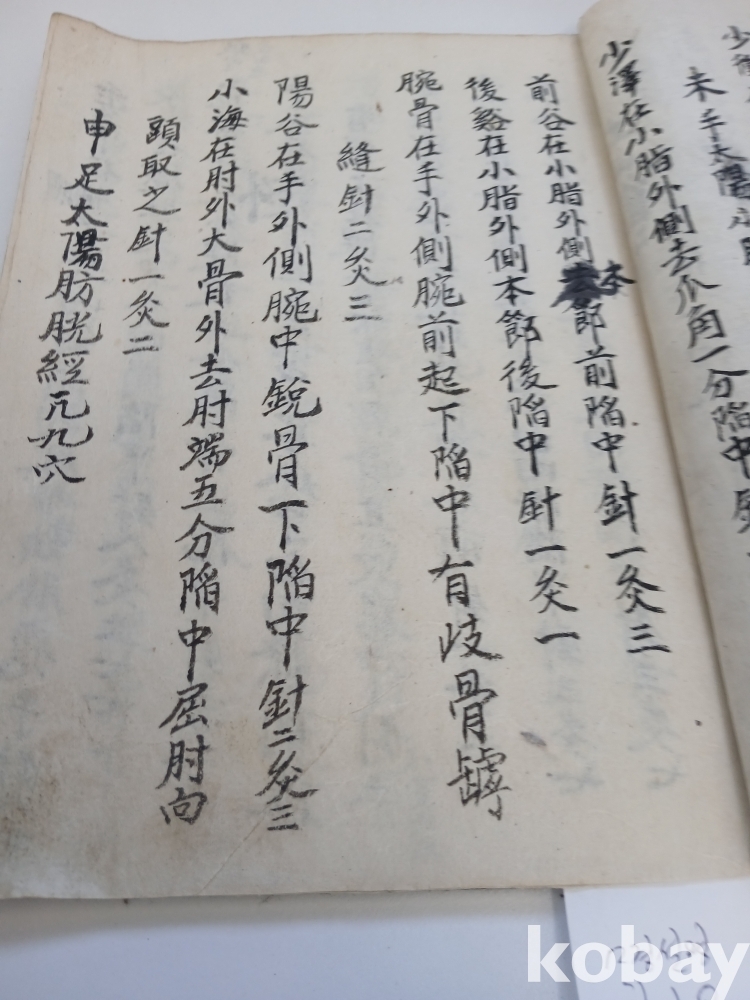 未手太陽小腸
少澤在小脂外側去爪角一分陷中
前谷在小脂外側本節前陷中針一灸三
後谿在小脂外側本節後陷中針一灸一
腕骨在手外側腕前起下陷中有岐骨罅
縫針二灸三
陽谷在手外側腕中銳骨下陷中針二灸三
小海在肘外大骨外去肘端五分陷中屈肘向
頭取之針一灸二
申足太陽肪胱經凡九穴
kobay